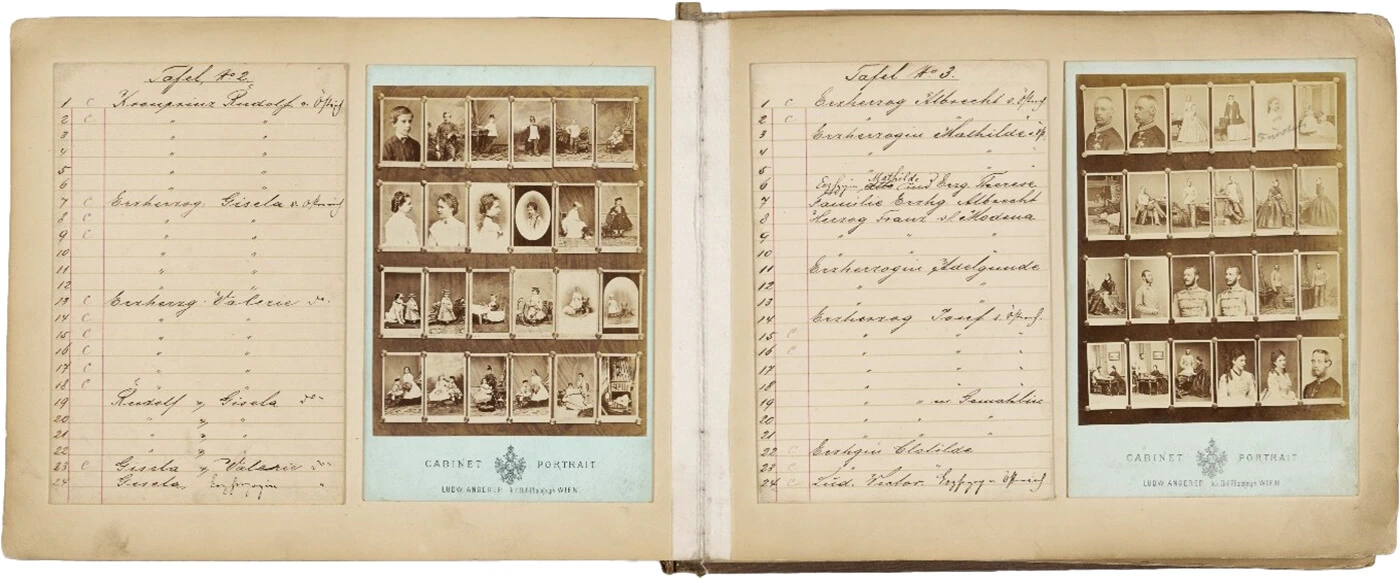 Tafel No 2.
1 c Kronprinz Rudolf v. Östrch
2 c " "
3 " "
4 " "
5 " "
6 " "
7 c Erzherzog. Gisela v. Östrch
8 c " "
9 c " "
10 " "
11 " "
12 " "
13 c Erzherzg. Valerie do.
14 c " "
15 c " "
16 c " "
17 c " "
18 c " "
19 Rudolf u. Gisela do
20 " " "
21 " " "
22 " " "
23 c Gisela u. Valerie do
24 Gisela Erzherzogin "
CABINET PORTRAIT
LUDW. ANGERER WIEN
Tafel No 3.
1 c Erzherzog Albrecht v. Östrch
2 c " "
3 Erzherzogin Mathilde
4 " " "
5 " " "
Mathilde
6 und Erzg. Therese
7 Familie Erzhg Albrecht
8 Herzog Franz v. Modena
9 " " "
10 " " "
11 Erzherzogin Adelgunde
12 " " "
13 " " "
14 c Erzherzog Josef v. Östrch.
15 c " " "
16 c " " "
17 " " "
18 " " "
19 " " u. Gemahlin
20 " " "
21 " " "
22 c Erzhgin Clotilde
23 c " "
24 c Lud. Victor Erzherzog v. Östreich
CABINET PORTRAIT
LUDW. ANGERER WIEN